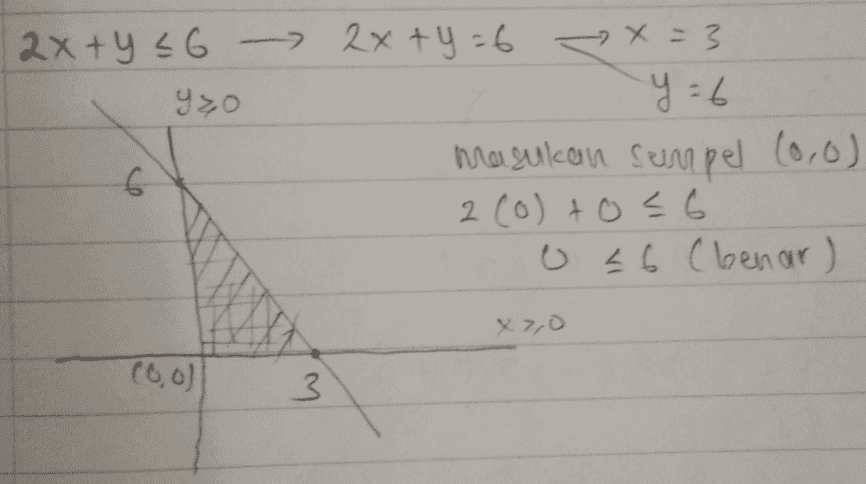 2x + y ≤ 6 → 2x + y = 6 → x = 3
y = 6
y ≥ 0
masukan sampel (0,0)
6
2(0) + 0 ≤ 6
0 ≤ 6 (benar)
x ≥ 0
(0,0)
3